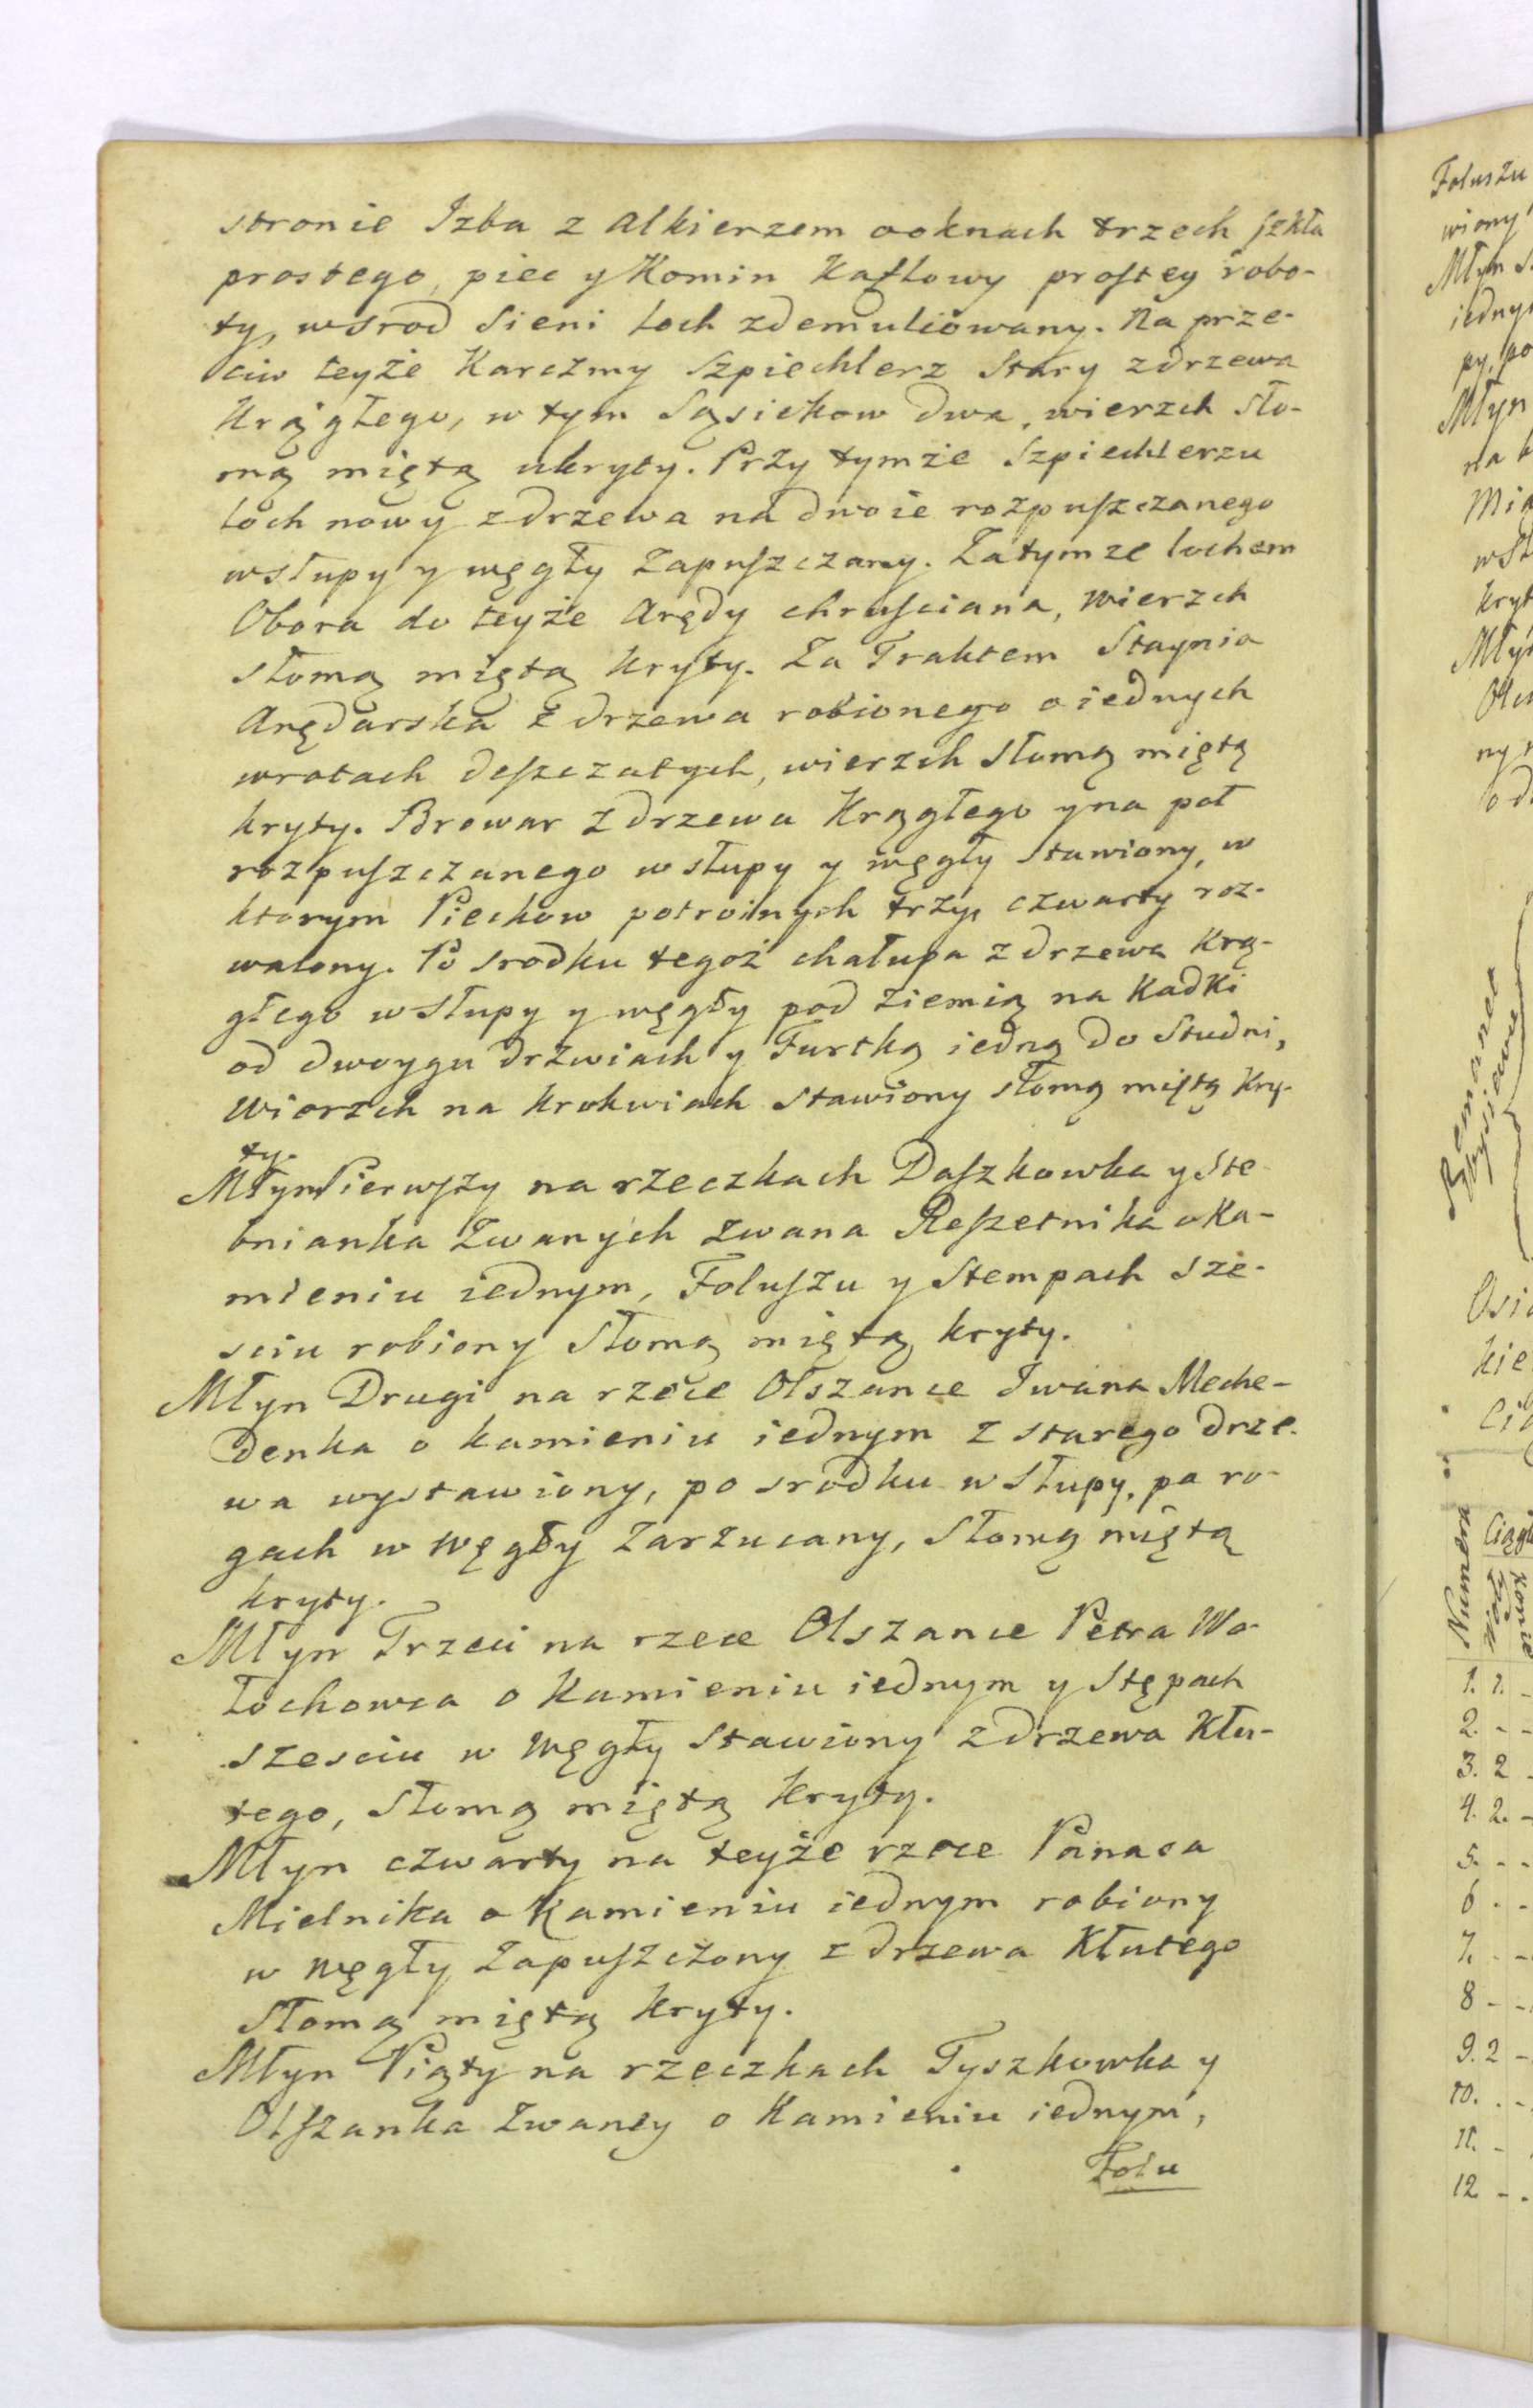 stronie Izba z alkierzem o oknach trzech szkła
prostego, piec y Komin Kaflowy prostey robo-
ty, wsrod Sieni loch zdemuliowany. Na prze-
ciw teyże Karczmy Szpiechlerz Stary z drzewa
Krągłego, w tym Sąsiekow dwa, wierzch sło-
mą miętą ukryty. Przy tymże Szpiechlerzu
loch nowy z drzewa na dwoie rozpuszczanego
w słupy y węgły Zapuszczany. Za tymze lochem
Obora do teyże Arędy chruściana, wierzch
słomą miętą kryty. Za Traktem Staynia
Arędarska z drzewa robionego o iednych
wrotach deszczatych, wierzch słomą miętą
kryty. Browar z drzewa Krągłego y na poł
rozpuszczanego w słupy y węgły Stawiony, w
ktorym Piechow potroinych trzy, czwarty roz-
walony. Po srodku tegoż chałupa z drzewa Krą-
głego w Słupy y węgły pod Ziemią na Kadki
od dwoygu drzwiach y Furtką iedną do Studni,
Wierzch na Krokwiach Stawiony słomą miętą Kry-
ty.
Młyn Pierwszy na rzeczkach Daszkowka y Ste-
bnianka Zwanych Zwana Reszetnika o Ka-
mieniu iednym, Foluszu y Stempach sze-
sciu robiony Słomą miętą kryty.
Młyn Drugi na rzece Olszance Iwana Meche-
denka o kamieniu iednym z starego drze-
wa wystawiony, po srodku w Słupy, po ro-
gach w Węgły Zarzucany, Słomą miętą
kryty.
Młyn Trzeci na rzece Olszance Petra Wo-
łochowca o Kamieniu iednym y Stępach
szesciu w Węgły Stawiony z drzewa Kłu-
tego, Słomą miętą Kryty.
Młyn czwarty na teyże rzece Panasa
Mielnika o Kamieniu iednym robiony
w węgły Zapuszczony z drzewa Kłutego
Słomą miętą Kryty.
Młyn Piąty na rzeczkach Tyszkowka y
Olszanka Zwaney o Kamieniu iednym,
Folu
Foluszu
wiony
Młyn
iednym
py, po
Młyn
na
kryt
Numera
Ciągł
1. 1. -
2. - -
3. 2 -
4. 2. -
5. - -
6 - -
7. - -
8 - -
9. 2 -
10. - -
11. -
12 - -